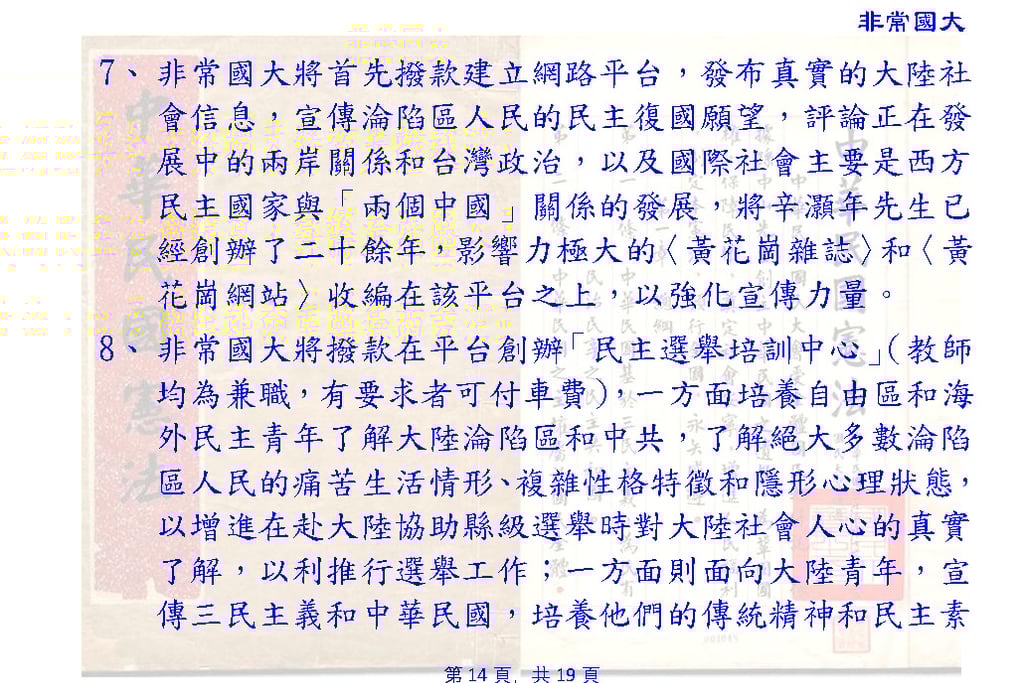 非常國大
7、非常國大將首先撥款建立網路平台，發布真實的大陸社
會信息，宣傳淪陷區人民的民主復國願望，評論正在發
展中的兩岸關係和台灣政治，以及國際社會主要是西方
民主國家與「兩個中國」關係的發展，將辛灝年先生已
經創辦了二十餘年，影響力極大的〈黃花崗雜誌〉和〈黃
花崗網站〉收編在該平台之上，以強化宣傳力量。
8、非常國大將撥款在平台創辦「民主選舉培訓中心」（教師
均為兼職，有要求者可付車費），一方面培養自由區和海
外民主青年了解大陸淪陷區和中共，了解絕大多數淪陷
區人民的痛苦生活情形、複雜性格特徵和隱形心理狀態，
以增進在赴大陸協助縣級選舉時對大陸社會人心的真實
了解，以利推行選舉工作；一方面則面向大陸青年，宣
傳三民主義和中華民國，培養他們的傳統精神和民主素
第 14 頁，共 19 頁
中華民國憲法
中華民國憲法